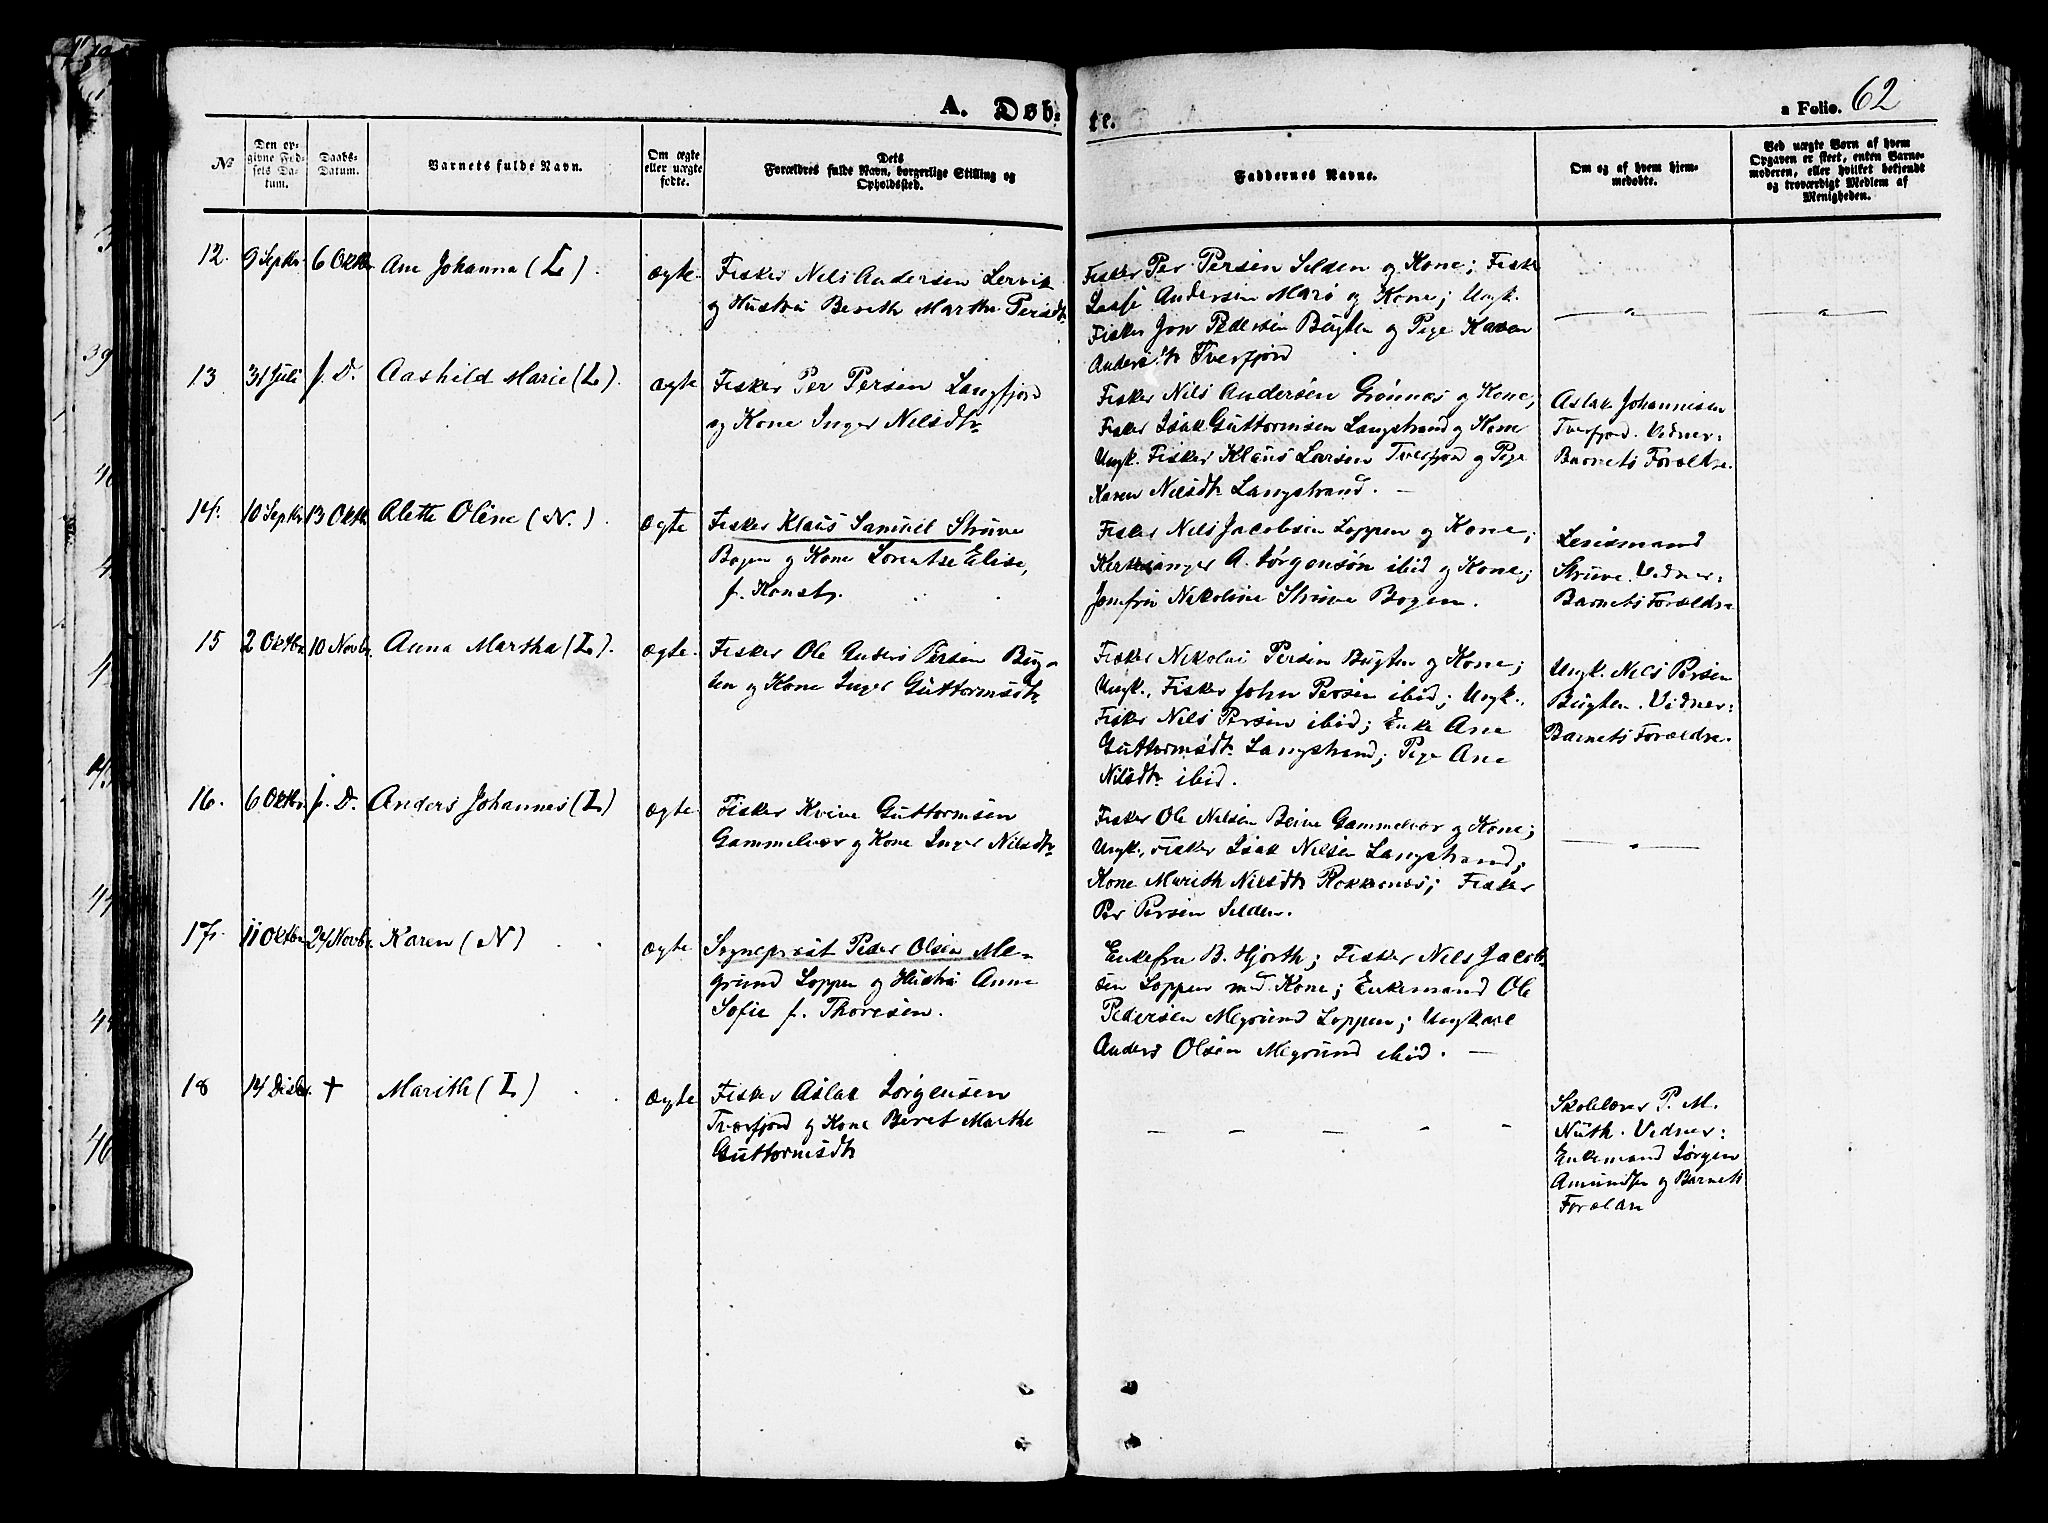 A. Døb-
te.
a Folio. 62
No
Den op-
givne Fød-
sels Da-
tum.
Daabs-
Datum.
Barnets fulde Navn.
Om ægte
eller uægte
fødte.
Dets
Forældres fulde Navn, borgerlige Stilling og
Opholdssted.
Faddernes Navne.
Om og af hvem hjem-
medøbte.
Ved uægte Børn af hvem
Opgaven er skeet, enten Barne-
moderen, eller hvilket bekjendt
og troværdigt Medlem af
Menigheden.
12. 9 Septbr 6 Oktbr Ane Johanna (L). ægte.
Fisker Nils Andersen Lervik
og Hustru Berith Marthe Persdtr
Fisker Per Persen Selden og Kone; Fisker
Lasse Andersen Marø og Kone; Ungk.
Fisker Jon Pedersen Bugten og Pige Karen
Andersdtr Tverfjord
13 31 Juli f. D. Aashild Marie (L). ægte
Fisker Per Persen Langfjord
og Kone Inger Nilsdtr
Fisker Nils Andersen Grønnæs og Kone;
Fisker Isak Guttormsen Langstrand og Kone
Ungk. Fisker Klaus Larsen Tverfjord og Pige
Karen Nilsdtr Langstrand. —
Aslak Johannesen
Tverfjord. Vidner:
Barnets Forældre.
14. 10 Septbr 13 Oktbr Alette Oline (N.). ægte
Fisker Klaus Samuel Struve
Bogen og Kone Lorentse Elise,
f. Konst.
Fisker Nils Jacobsen Loppen og Kone;
Kirkesanger A. Jørgensøn ibid og Kone;
Jomfru Nikoline Struve Bogen.
Lensmand
Struve. Vidner:
Barnets Forældre
15 2 Oktbr 10 Novbr. Anna Martha (L). ægte.
Fisker Ole Anders Persen Bug-
ten og Kone Inger Guttormsdtr
Fisker Nikolai Persen Bugten og Kone;
Ungk. Fisker John Persen ibid; Ungk.
Fisker Nils Persen ibid; Enke Ane
Guttormsdtr Langstrand; Pige Ane
Nilsdtr ibid.
Ungk. Nils Persen
Bugten. Vidner:
Barnets Forældre.
16. 6 Oktbr. f. D. Anders Johannes (L) ægte.
Fisker Kvive Guttormsen
Gammelvær og Kone Inger Nilsdtr
Fisker Ole Nilsen Beive Gammelvær og Kone;
Ungk. Fisker Isak Nilsen Langstrand;
Kone Marith Nilsdtr Flokkenæs; Fisker
Per Persen Selden.
17. 11 Oktbr 24 Novbr. Karen (N) ægte
Sogneprest Peder Olsen Me-
grund Loppen og Hustru Anne
Sofie f. Thoresen.
Enkefru B. Hjorth; Fisker Nils Jacob-
sen Loppen med Kone; Enkemand Ole
Pedersen Megrund Loppen; Ungkarl
Anders Olsen Megrund ibid. —
18 14 Disbr. † Marith (L) ægte
Fisker Aslak Jørgensen
Tverfjord og Kone Beret Marthe
Guttormsdtr
Skolelærer P. M.
Nuth. Vidner:
Enkemand Jørgen
Amundsen og Barnets
Forældre